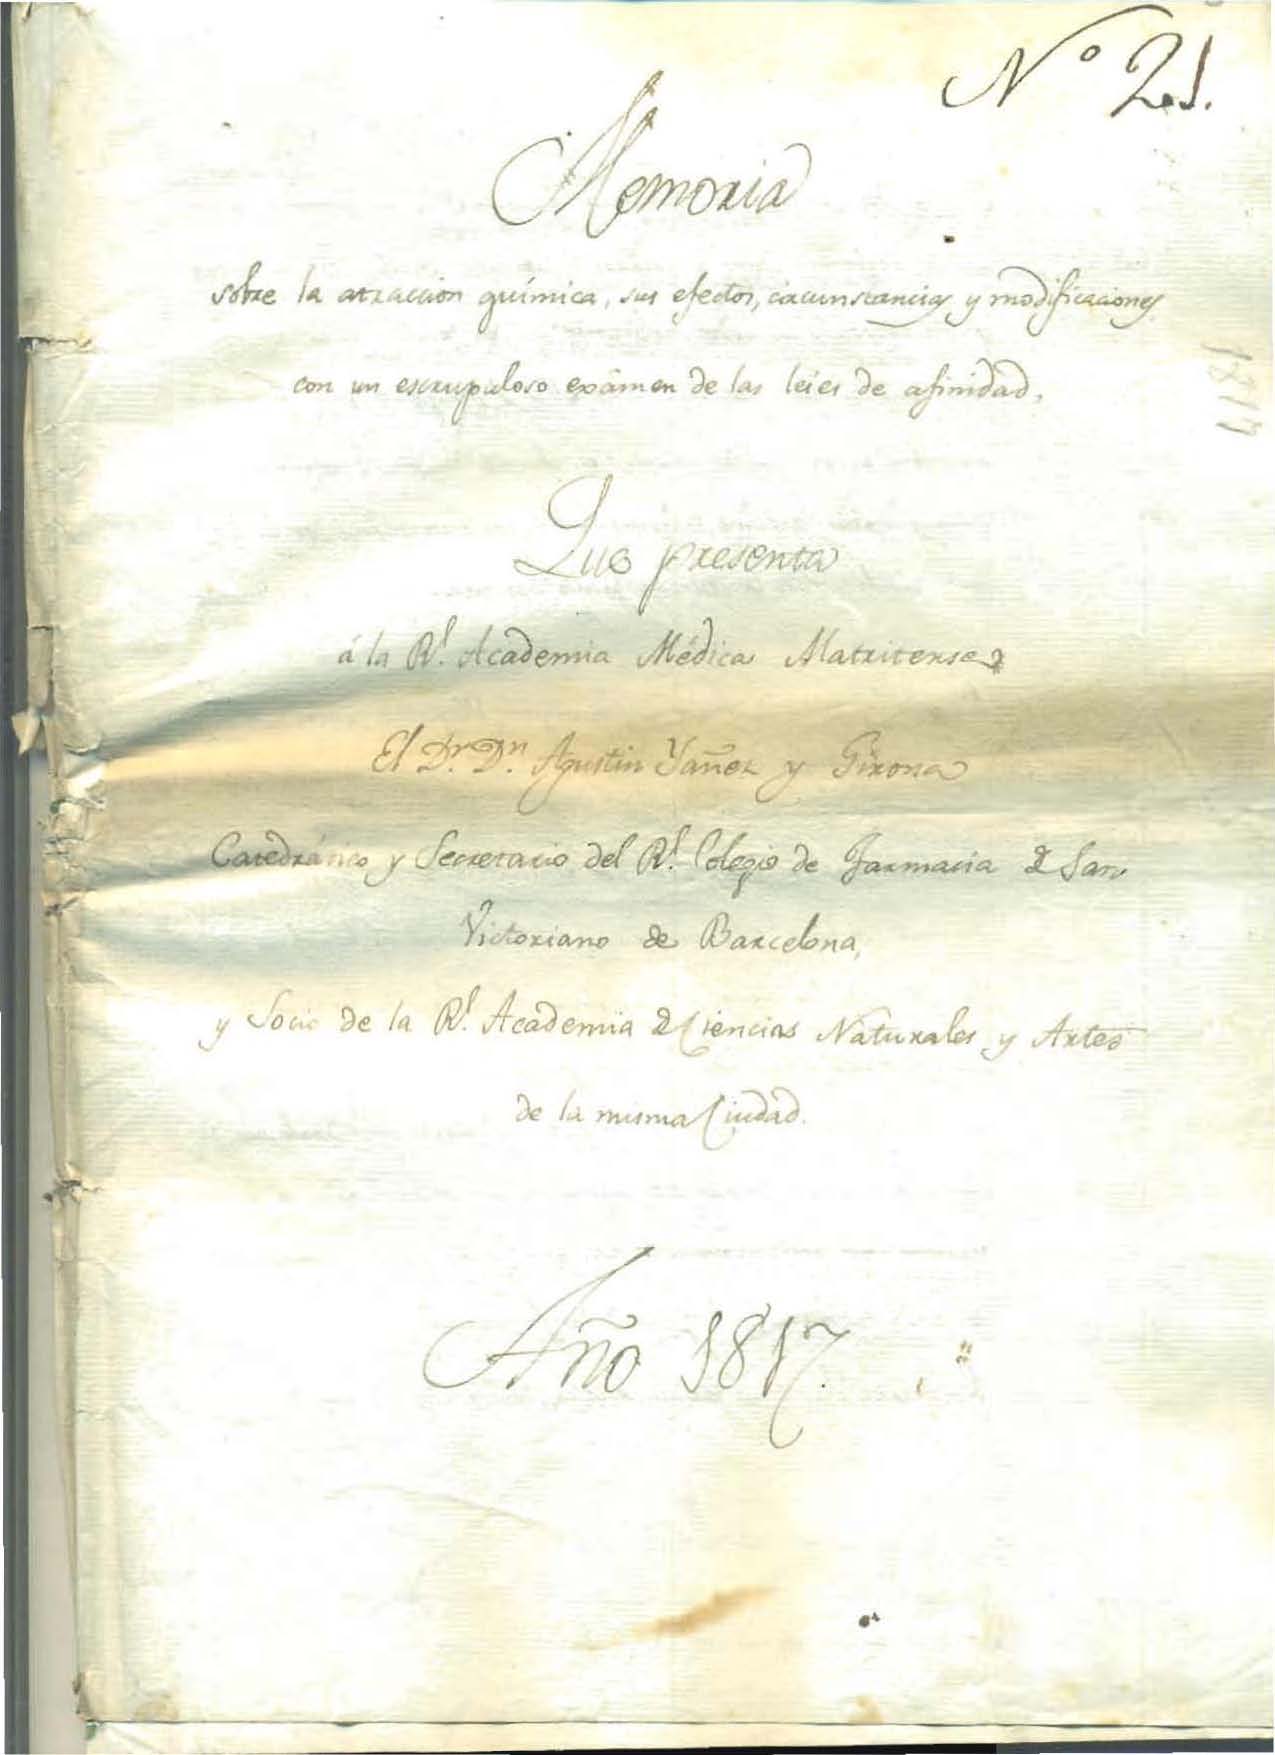 Nº 21.
Memoria
sobre la atraccion química, sus efectos, circunstancias y modificaciones
con un escrupuloso exâmen de las leies de afinidad,
1817
Que presenta
á la Rl. Academia Médica Matritense
El Dr. Dn. Agustin Yañez y Girona
Catedrático y Secretario del Rl. Colegio de Farmacia de San
Victoriano de Barcelona,
y Socio de la Rl. Academia de Ciencias Naturales y Artes
de la misma Ciudad.
Año 1817.